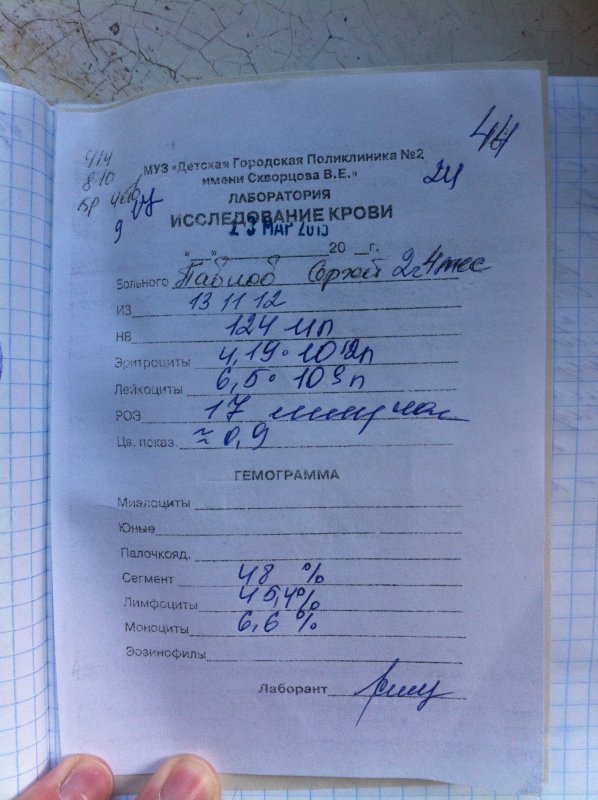 44
414
8-10
МУЗ «Детская Городская Поликлиника №2
имени Скворцова В.Е.»
ЛАБОРАТОРИЯ
24
9
ИССЛЕДОВАНИЕ КРОВИ
23 МАР 2015
"__"________ 20 __г.
Больного Павлов Сергей 2г4мес
ИЗ 13 11 12
НВ 124 г/л
Эритроциты 4,19 · 10 12л
Лейкоциты 6,5 · 10 9л
РОЭ 17 мм/час
Цв. показ ≈ 0,9
ГЕМОГРАММА
Миэлоциты
Юные
Палочкояд.
Сегмент 48 %
Лимфоциты 45,4%
Моноциты 6,6 %
Эозинофилы
Лаборант